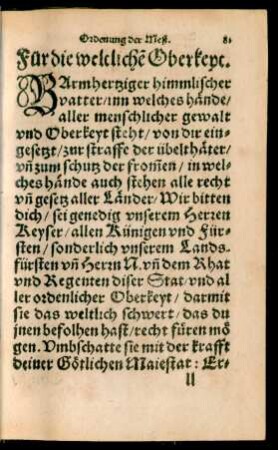 Ordenung der Meß. 81
Für die weltlichē Oberkeyt.
BArmhertziger himmlischer
vatter/inn welches hände/
aller menschlicher gewalt
vnd Oberkeyt steht/von dir ein-
gesetzt/zur straffe der übelthäter/
vn̄ zum schutz der from̄en/in wel-
ches hände auch stehen alle recht
vn̄ gesetz aller Länder/Wir bitten
dich/sei genedig vnserem Herren
Keyser/allen Künigen vnd Für-
sten/sonderlich vnserem Lands-
fürsten vn̄ Herrn N. vn̄ dem Rhat
vnd Regenten diser Stat vnd al
ler ordenlicher Oberkeyt/darmit
sie das weltlich schwert/das du
jnen befolhen hast/recht füren mö
gen. Vmbschatte sie mit der krafft
deiner Götlichen Maiestat: Er-
ll